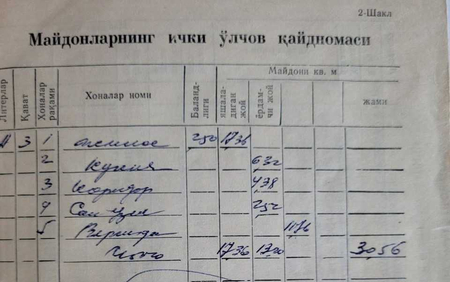 2-Шакл
Майдонларнинг ички ўлчов қайдномаси
Литерлар Қават Хоналар рақами Хоналар номи Баландлиги яшаладиган жой Майдони кв. м ёрдамчи жой жами
3 1 жилое 250 1736
2 кухня 632
3 коридор 438
4 Сан узел 252
5 Веранда
Итого 1736 3056